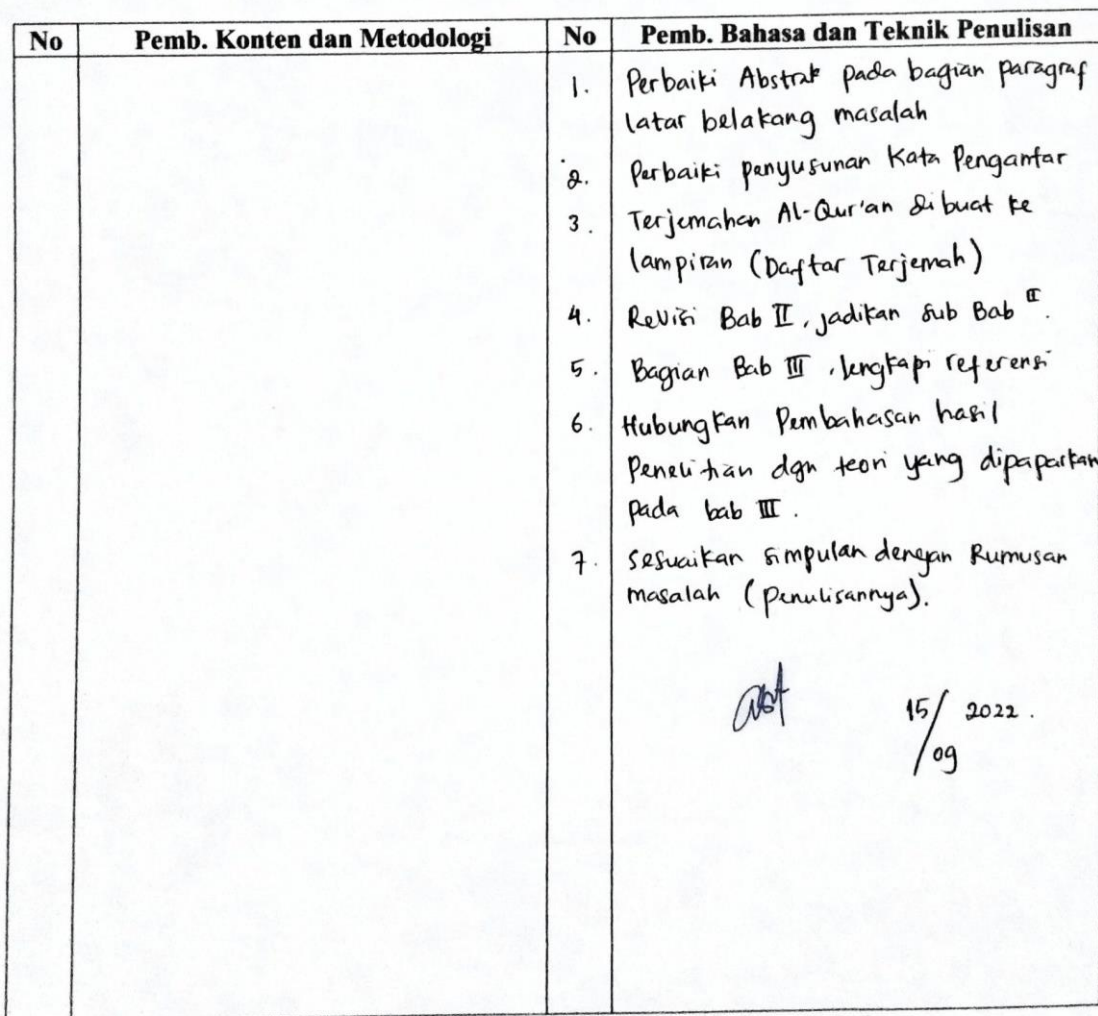 No Pemb. Konten dan Metodologi No Pemb. Bahasa dan Teknik Penulisan
1. Perbaiki Abstrak pada bagian paragraf
latar belakang masalah
2. Perbaiki penyusunan Kata Pengantar
3. Terjemahan Al-Qur'an dibuat ke
lampiran (Daftar Terjemah)
4. Revisi Bab II, jadikan sub Bab II.
5. Bagian Bab III, lengkapi referensi
6. Hubungkan Pembahasan hasil
Penelitian dgn teori yang dipaparkan
pada bab III.
7. Sesuaikan simpulan dengan Rumusan
masalah (penulisannya).
15/09 2022.